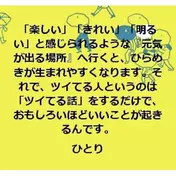 「楽しい」「きれい」「明る
い」と感じられるような『元気
が出る場所』へ行くと、ひらめ
きが生まれやすくなります。そ
れで、ツイてる人というのは
「ツイてる話」をするだけで、
おもしろいほどいいことが起き
るんです。
ひとり